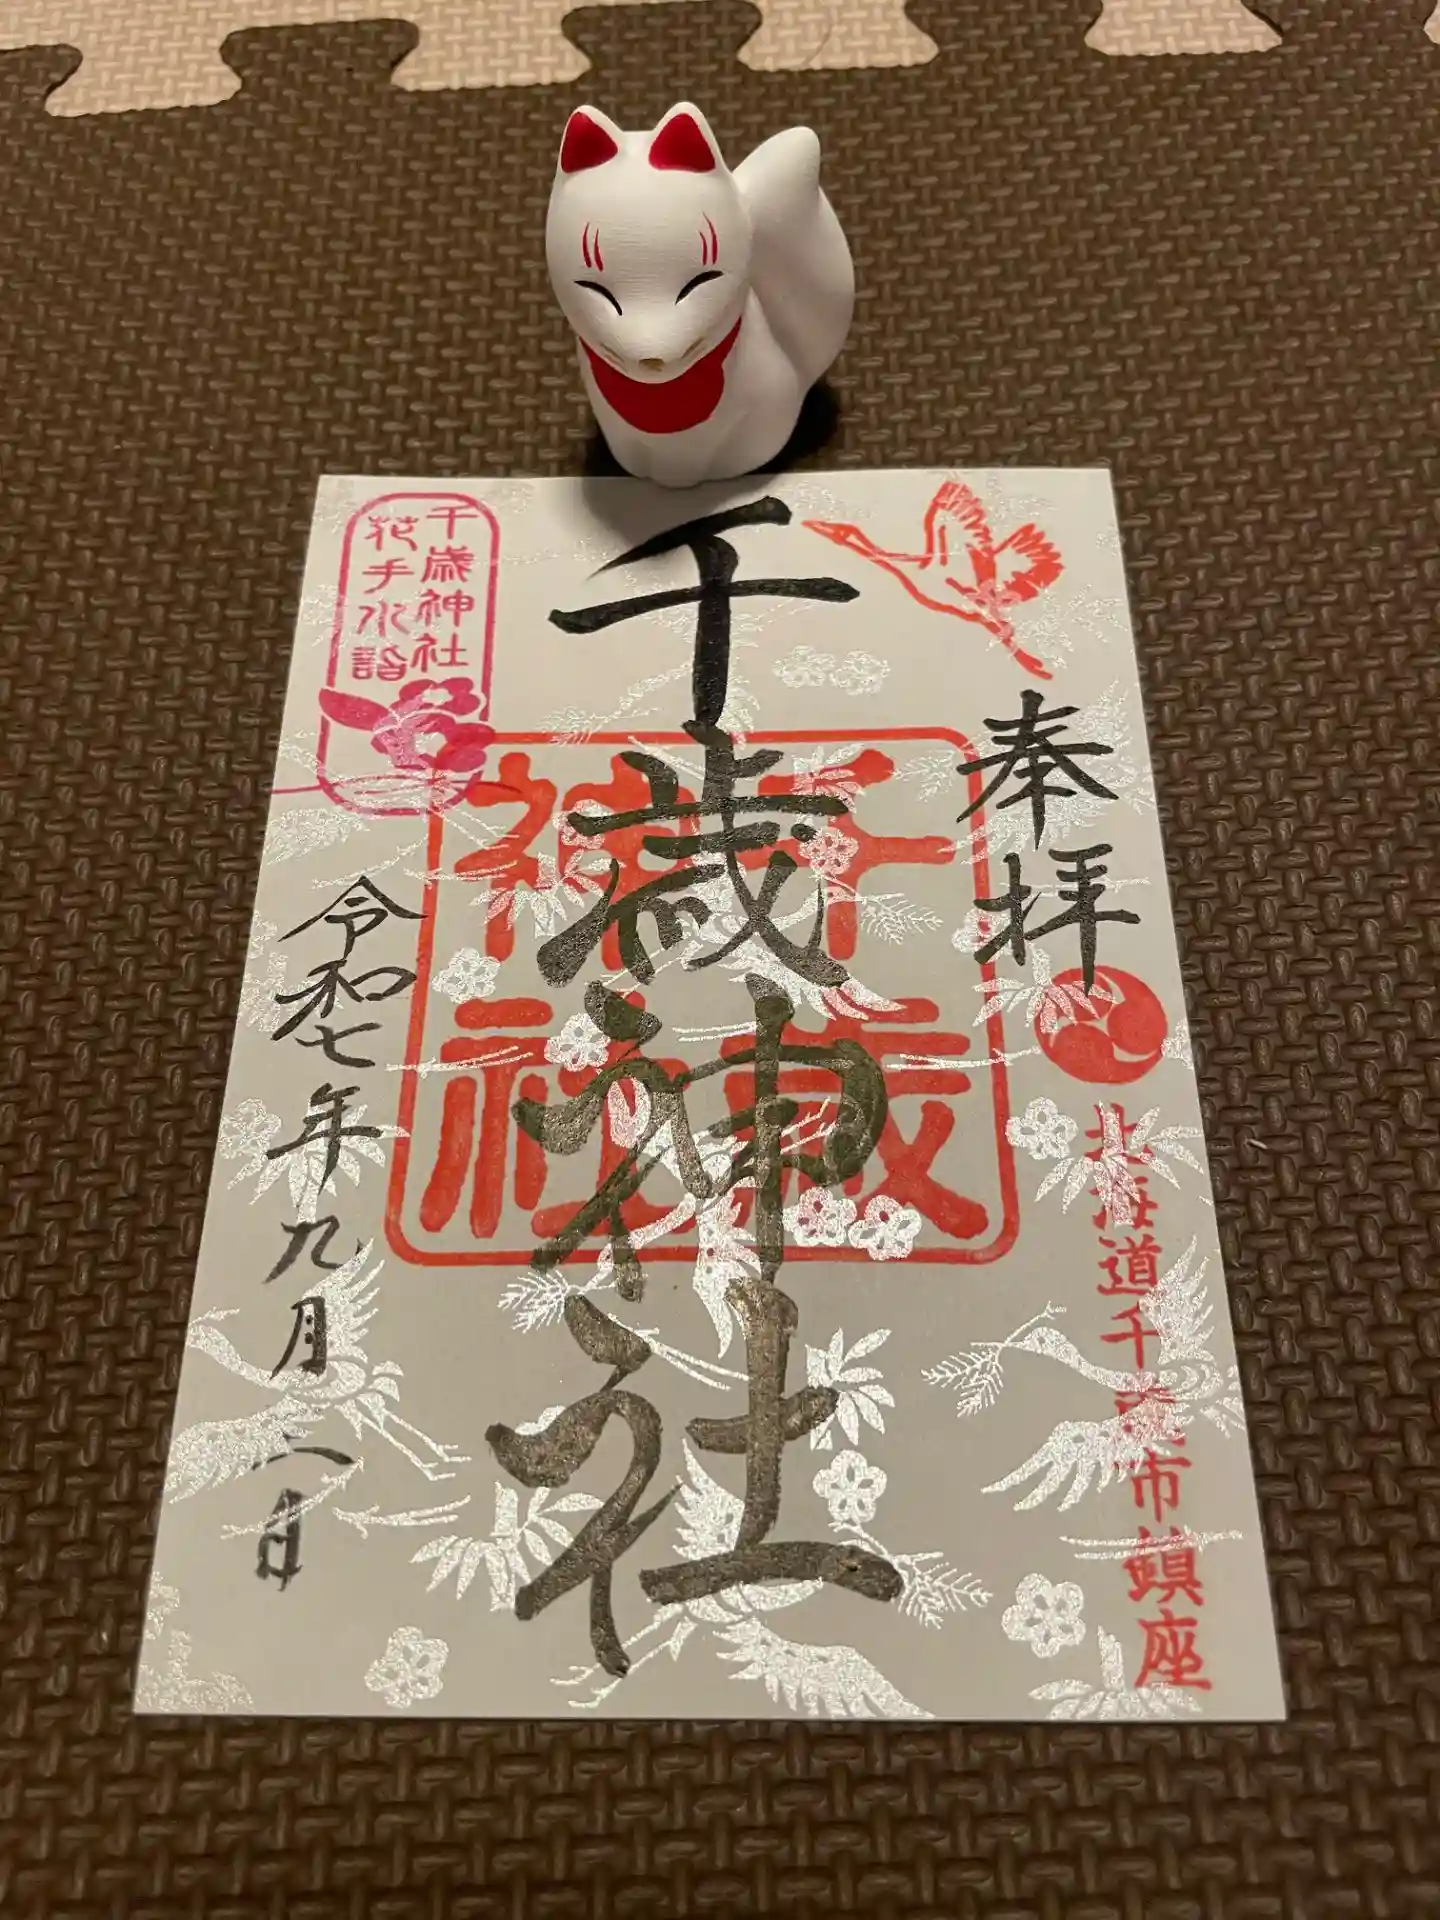 奉拝
北海道千歳市鎮座
千歳神社
千歳
神社
千歳神社
花手水詣
令和七年九月二日